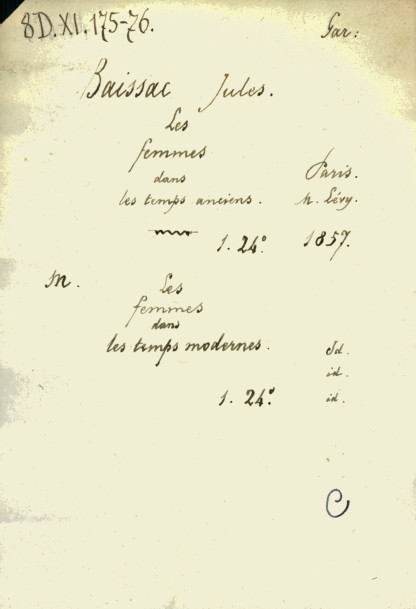 8D.XI.175-76.
Gar:
Baissac Jules.
Les
femmes
dans
les temps anciens.
Paris.
M. Lévy.
1857.
1. 24°.
M.
Les
femmes
dans
les temps modernes.
Id.
id.
id.
1. 24°.
C